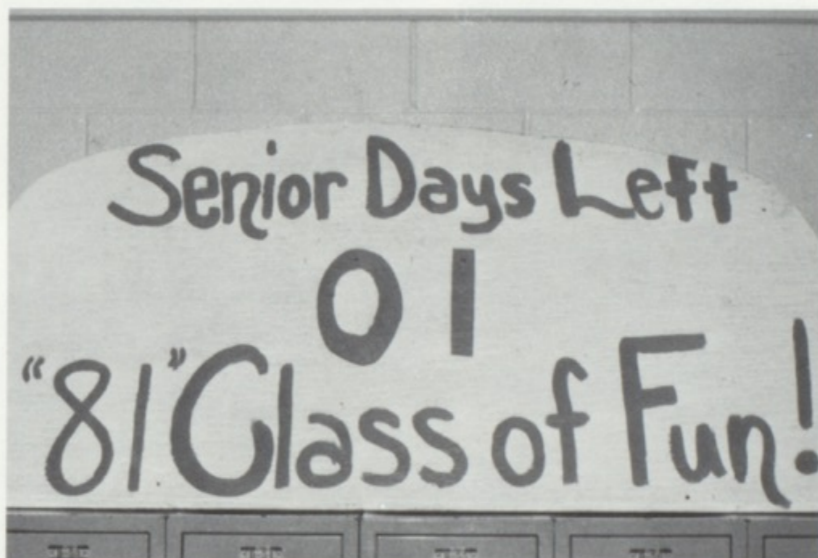 Senior Days Left
01
"81" Class of Fun!